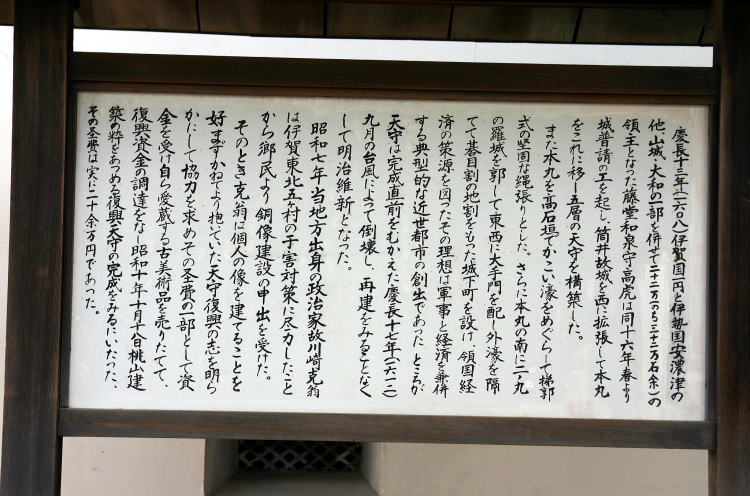 慶長十三年(一六〇八)伊賀国一円と伊勢国安濃津の
他、山城、大和の一部を併せて二十二万(のち三十二万石余)の
領主となった藤堂和泉守高虎は同十六年春より
城普請の工を起し、筒井故城を西に拡張して本丸
をこれに移し五層の天守を構築した。
また本丸を高石垣でかこい濠をめぐらして梯郭
式の堅固な縄張りとした。さらに本丸の南に二ノ丸
の羅城を郭して東西に大手門を配し外濠を隔
てて碁目割の地割をもった城下町を設け、領国経
済の策源を図ったその理想は軍事と経済を兼併
する典型的な近世都市の創出であった ところが
天守は完成直前をむかえた慶長十七年(一六一二)
九月の台風によって倒壊し、再建をみることなく
して明治維新となった。
昭和七年当地方出身の政治家故川崎克翁
は伊賀東北五ヶ村の干害対策に尽力したこと
から郷民より銅像建設の申出を受けた。
そのとき克翁は個人の像を建てることを
好まずかねてより抱いていた天守復興の志を明ら
かにして協力を求めその圣費の一部として資
金を受け自ら愛蔵する古美術品を売りたてて、
復興資金の調達をなし昭和十年十月十八日桃山建
築の粋をあつめる復興天守の完成をみるにいたった、
その圣費は実に二十余万円であった。